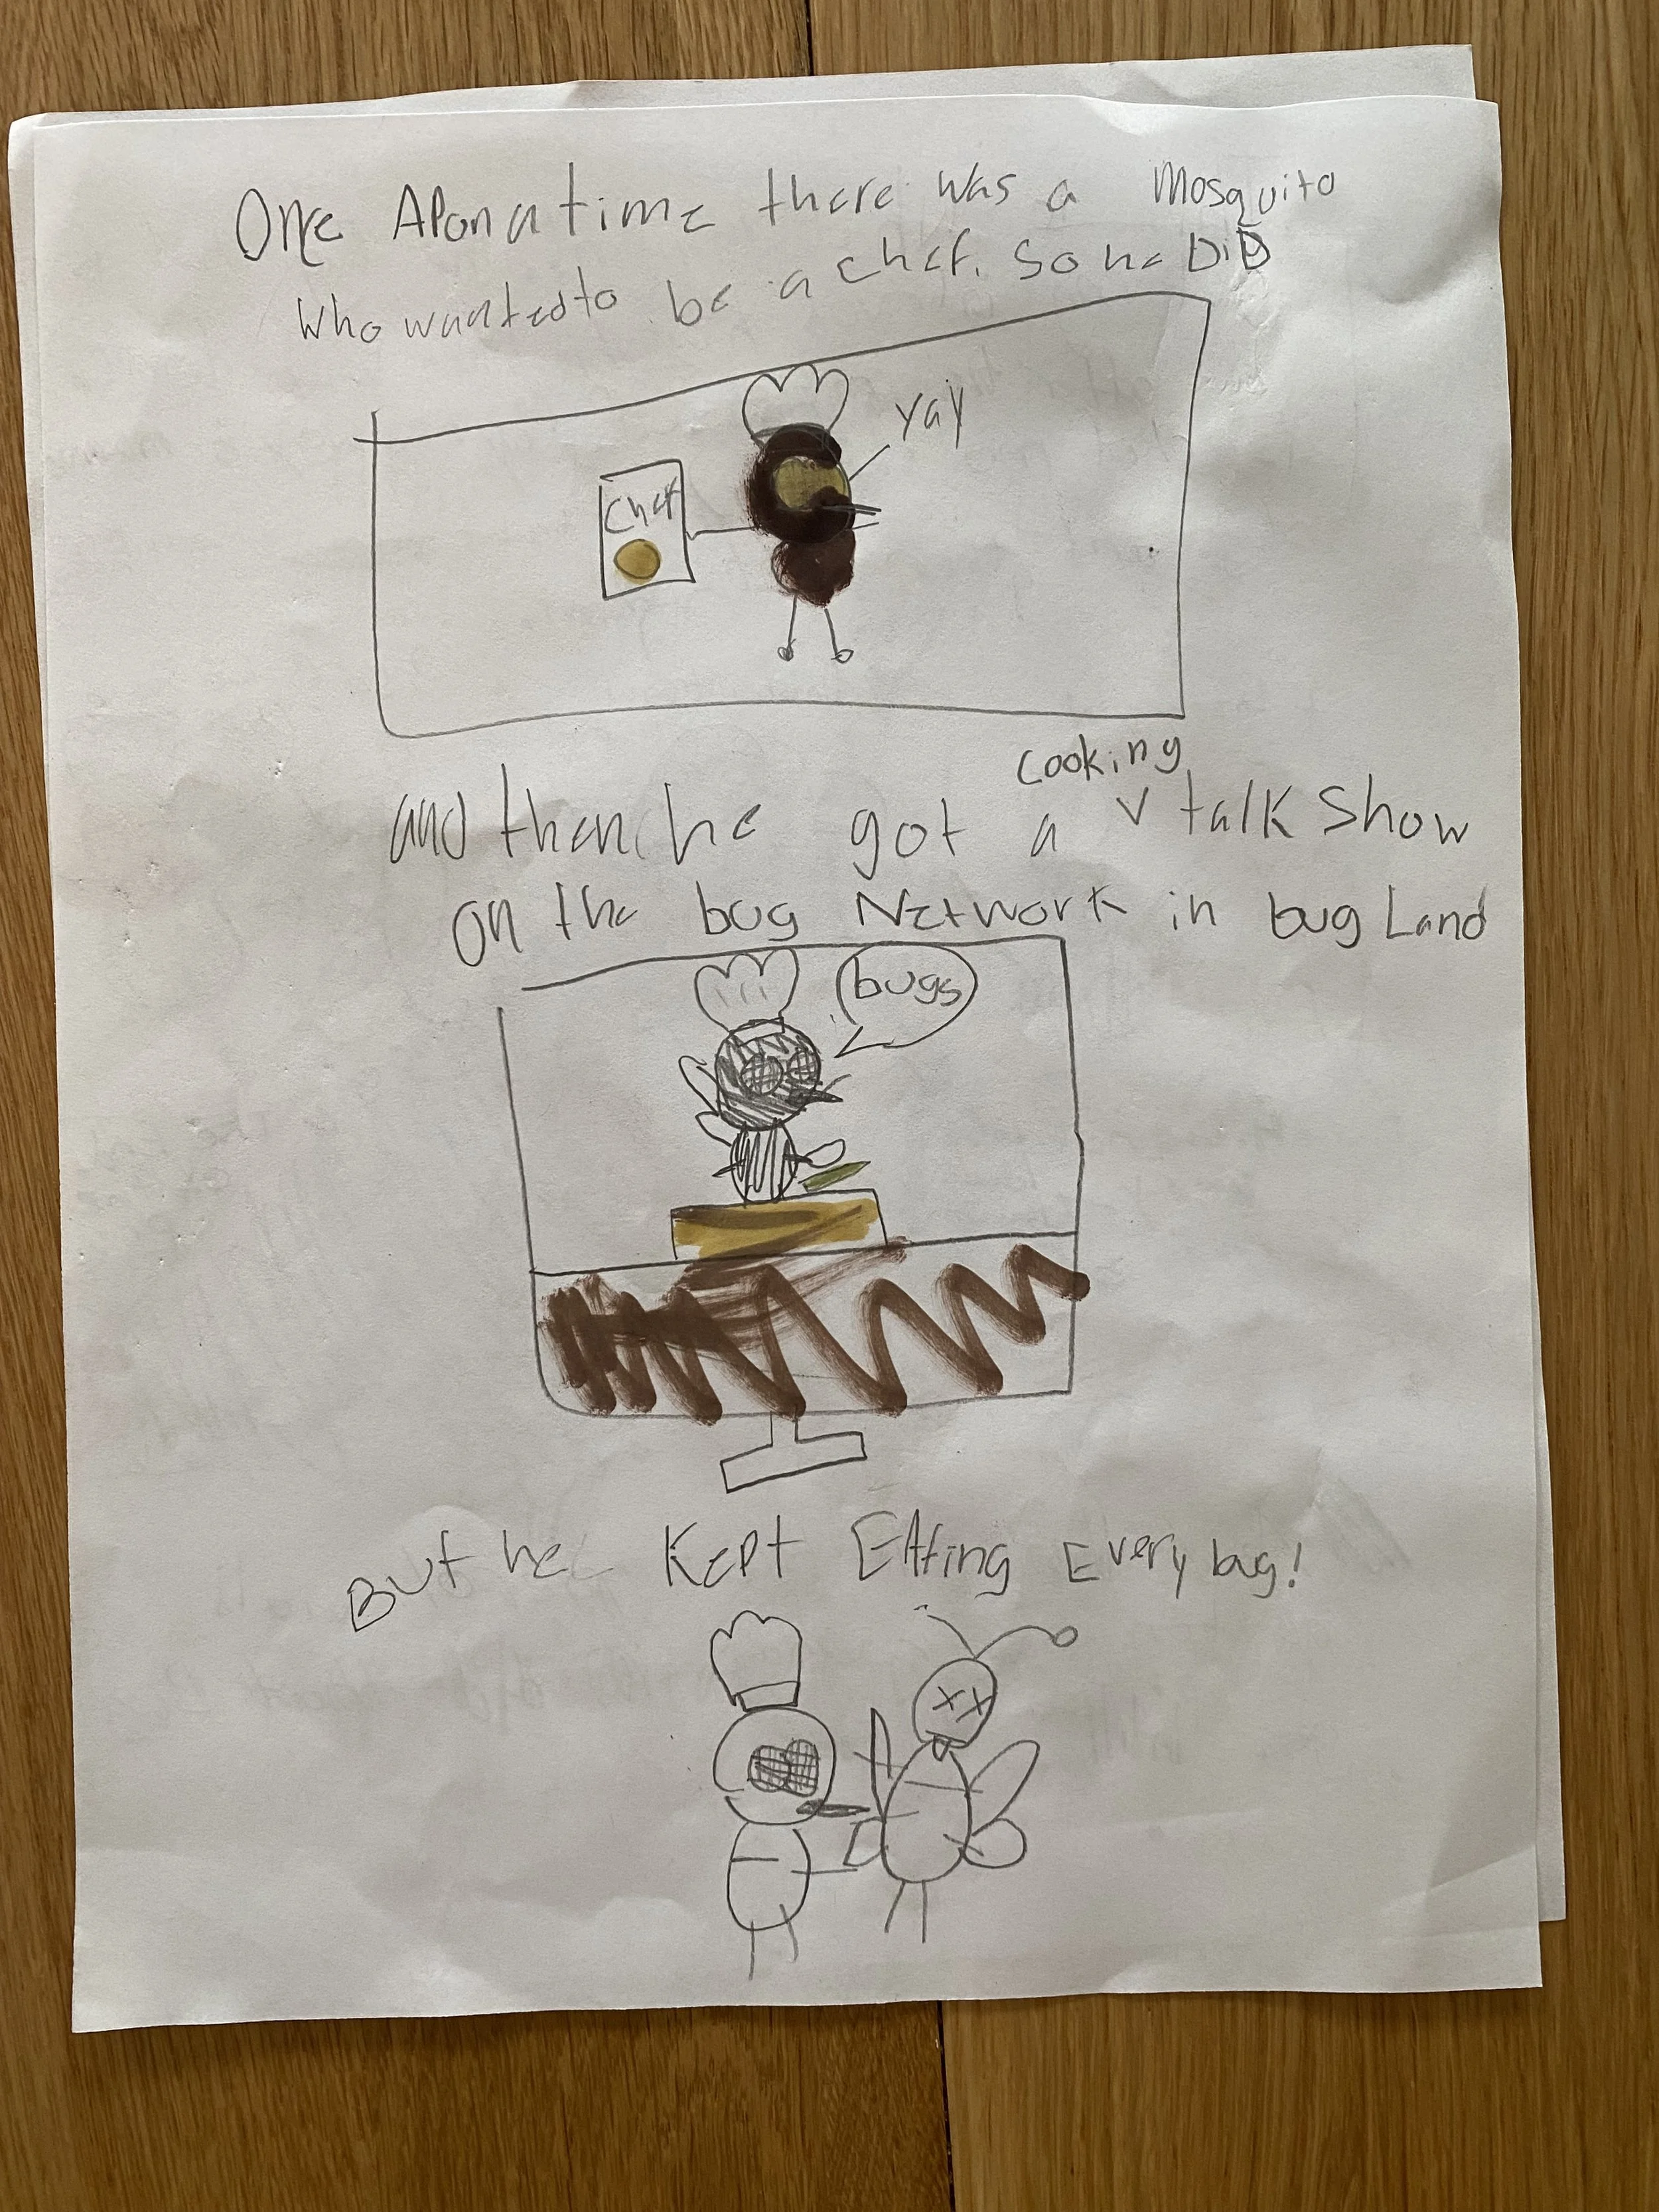 Once Apon a time there was a Mosquito
Who wanted to be a chef. So he DiD
yay
Chef
cooking
and then he got a v talk Show
On the bug Network in bug Land
bugs
But he Kept EAting Every bug!